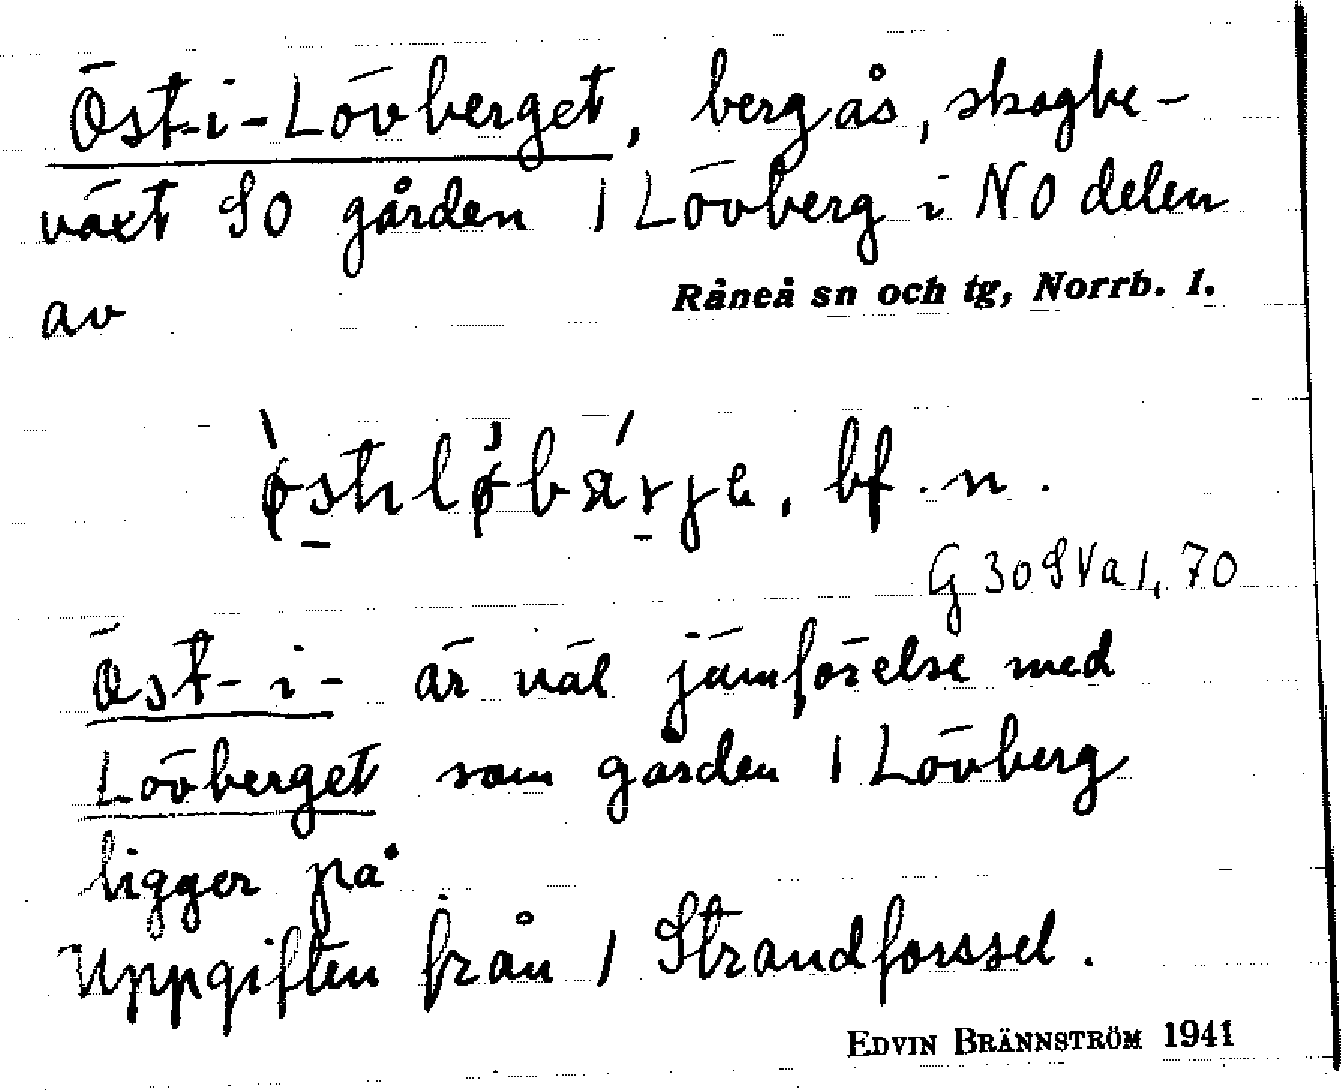 Öst-i-Lövberget, bergås, skogbe-
växt SO gården 1 Lövberg i NO delen
av Råneå sn och tg, Norrb. l.
bf. n.
G 30 SVa 1, 70
Öst-i- är väl jämförelse med
Lövberget som gården 1 Lövberg
ligger på
Uppgiften från 1 Strandforssel.
EDVIN BRÄNNSTRÖM 1941